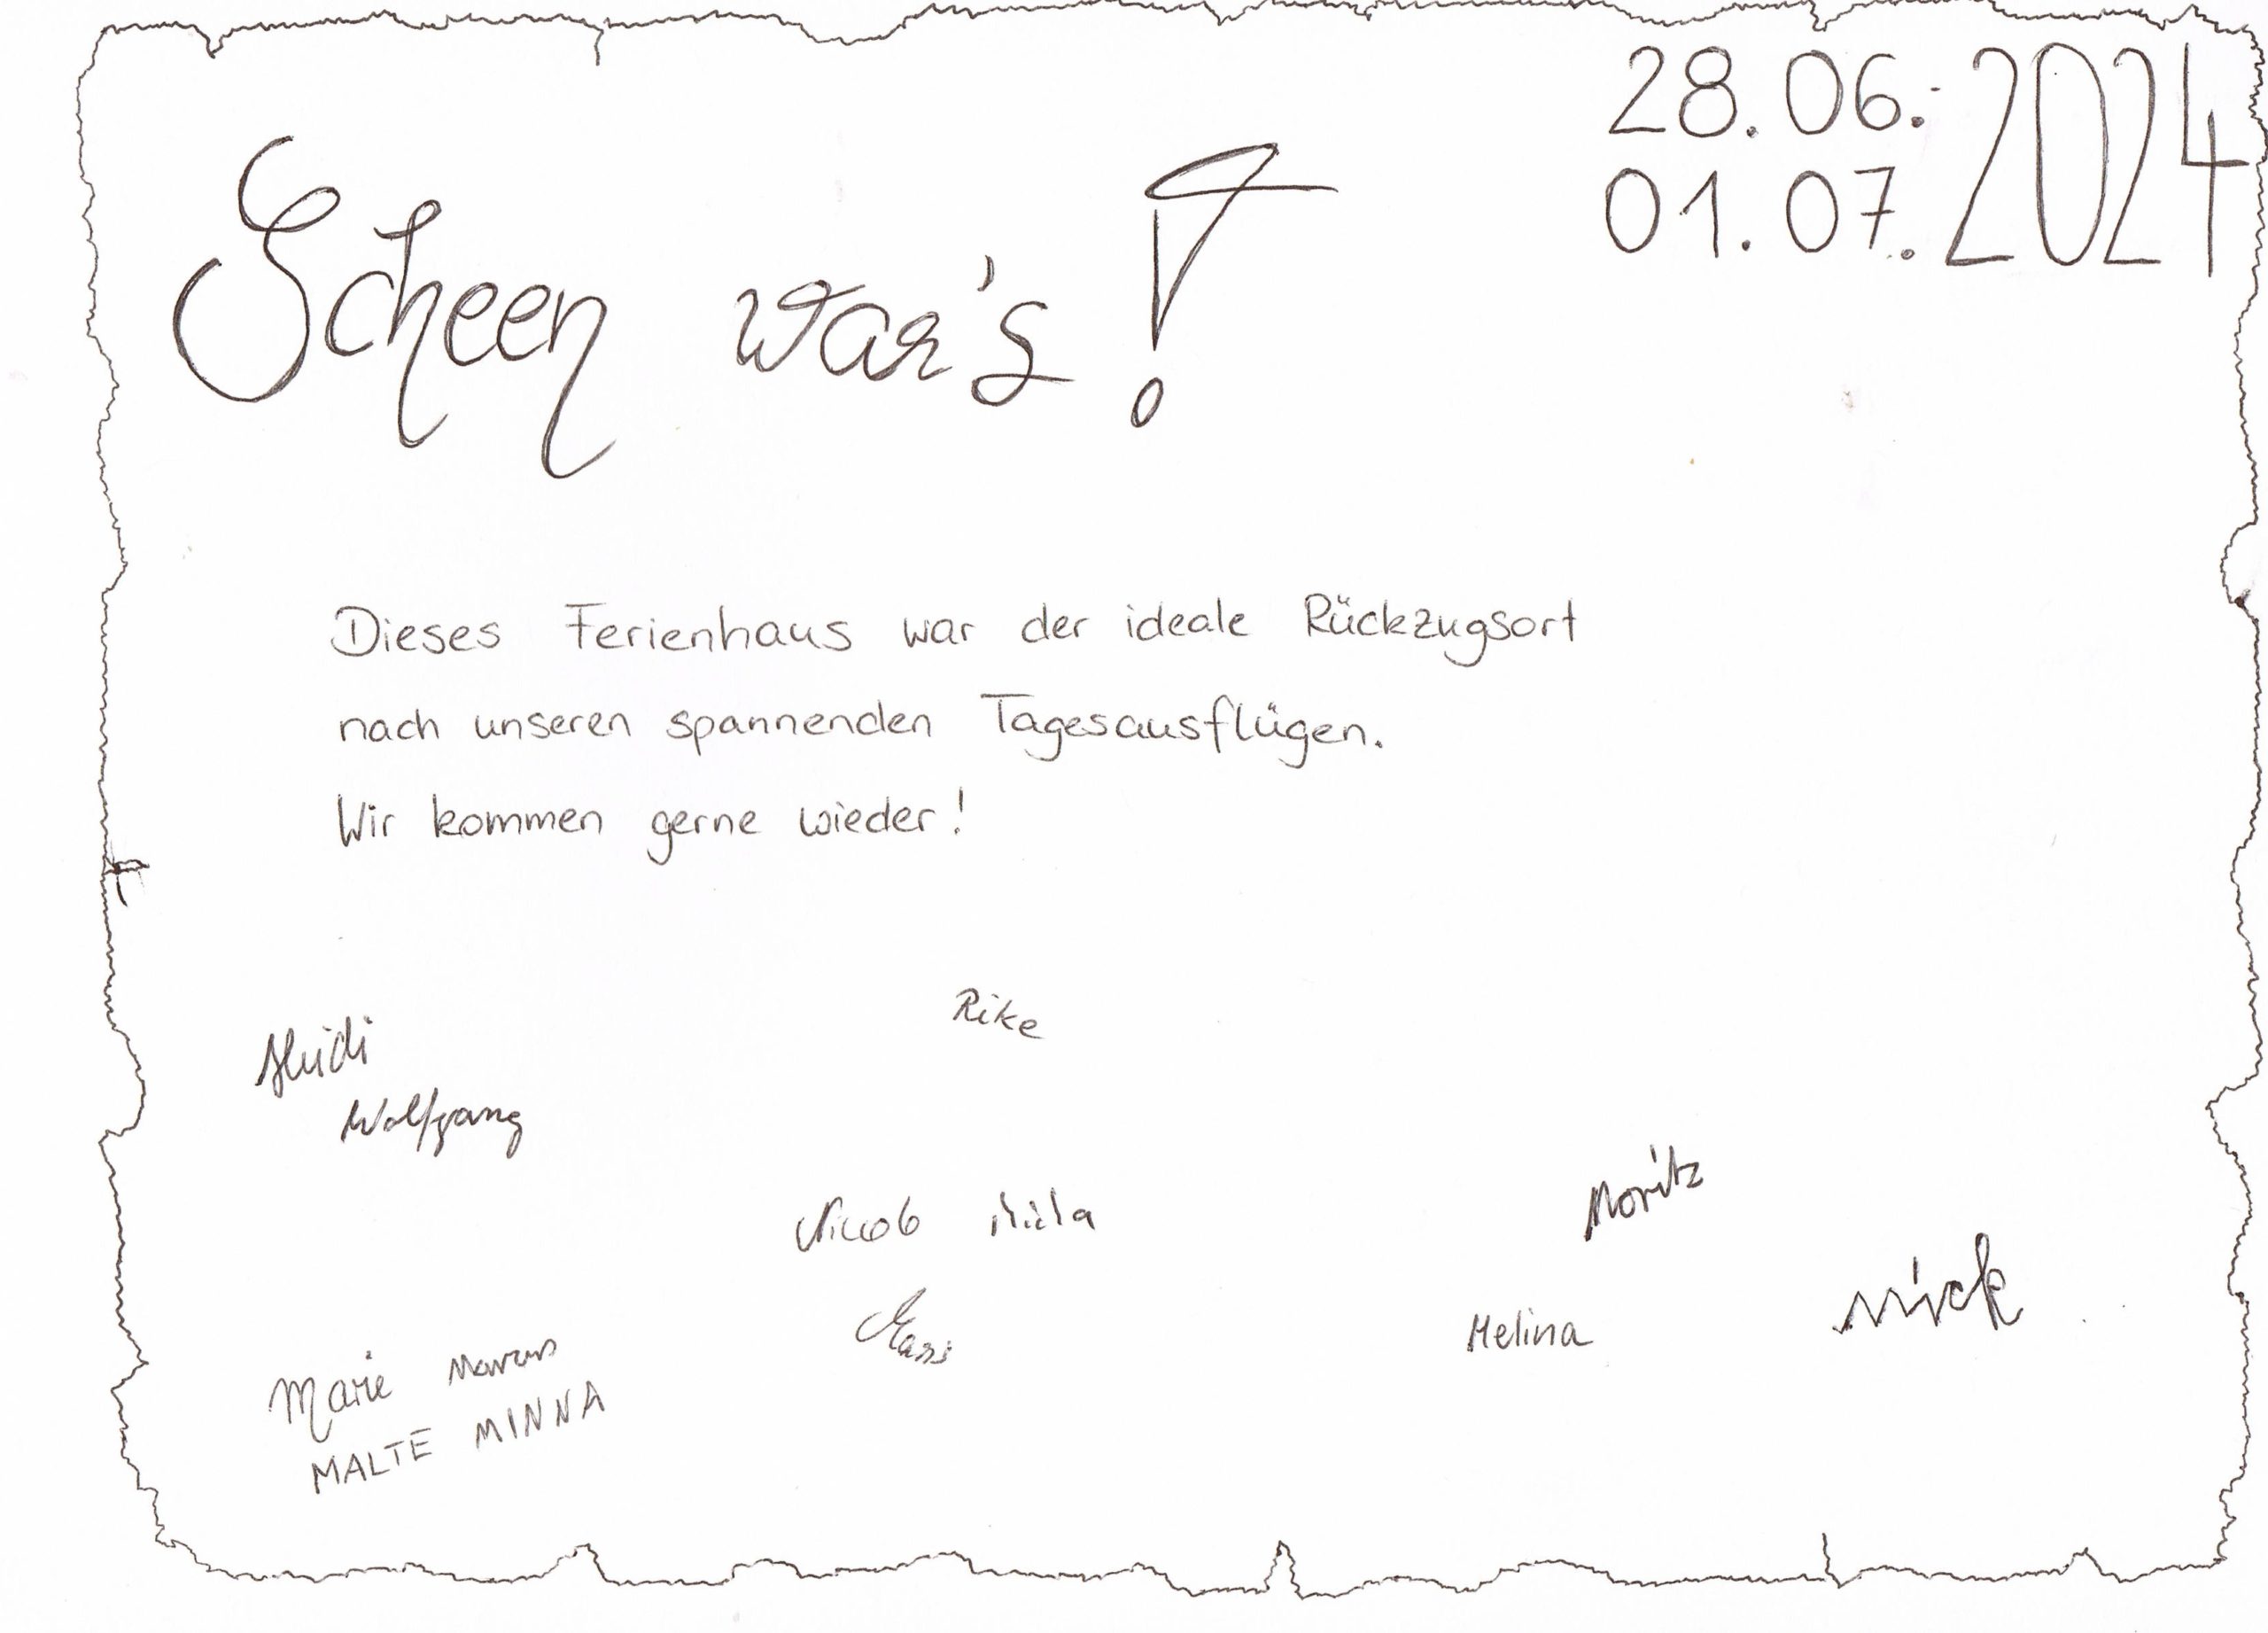 28.06.-
01.07. 2024
Scheen war's!
Dieses Ferienhaus war der ideale Rückzugsort
nach unseren spannenden Tagesausflügen.
Wir kommen gerne wieder!
Rike
Heidi
Wolfgang
Moritz
Nick
Melina
Marie Marcus
MALTE MINNA